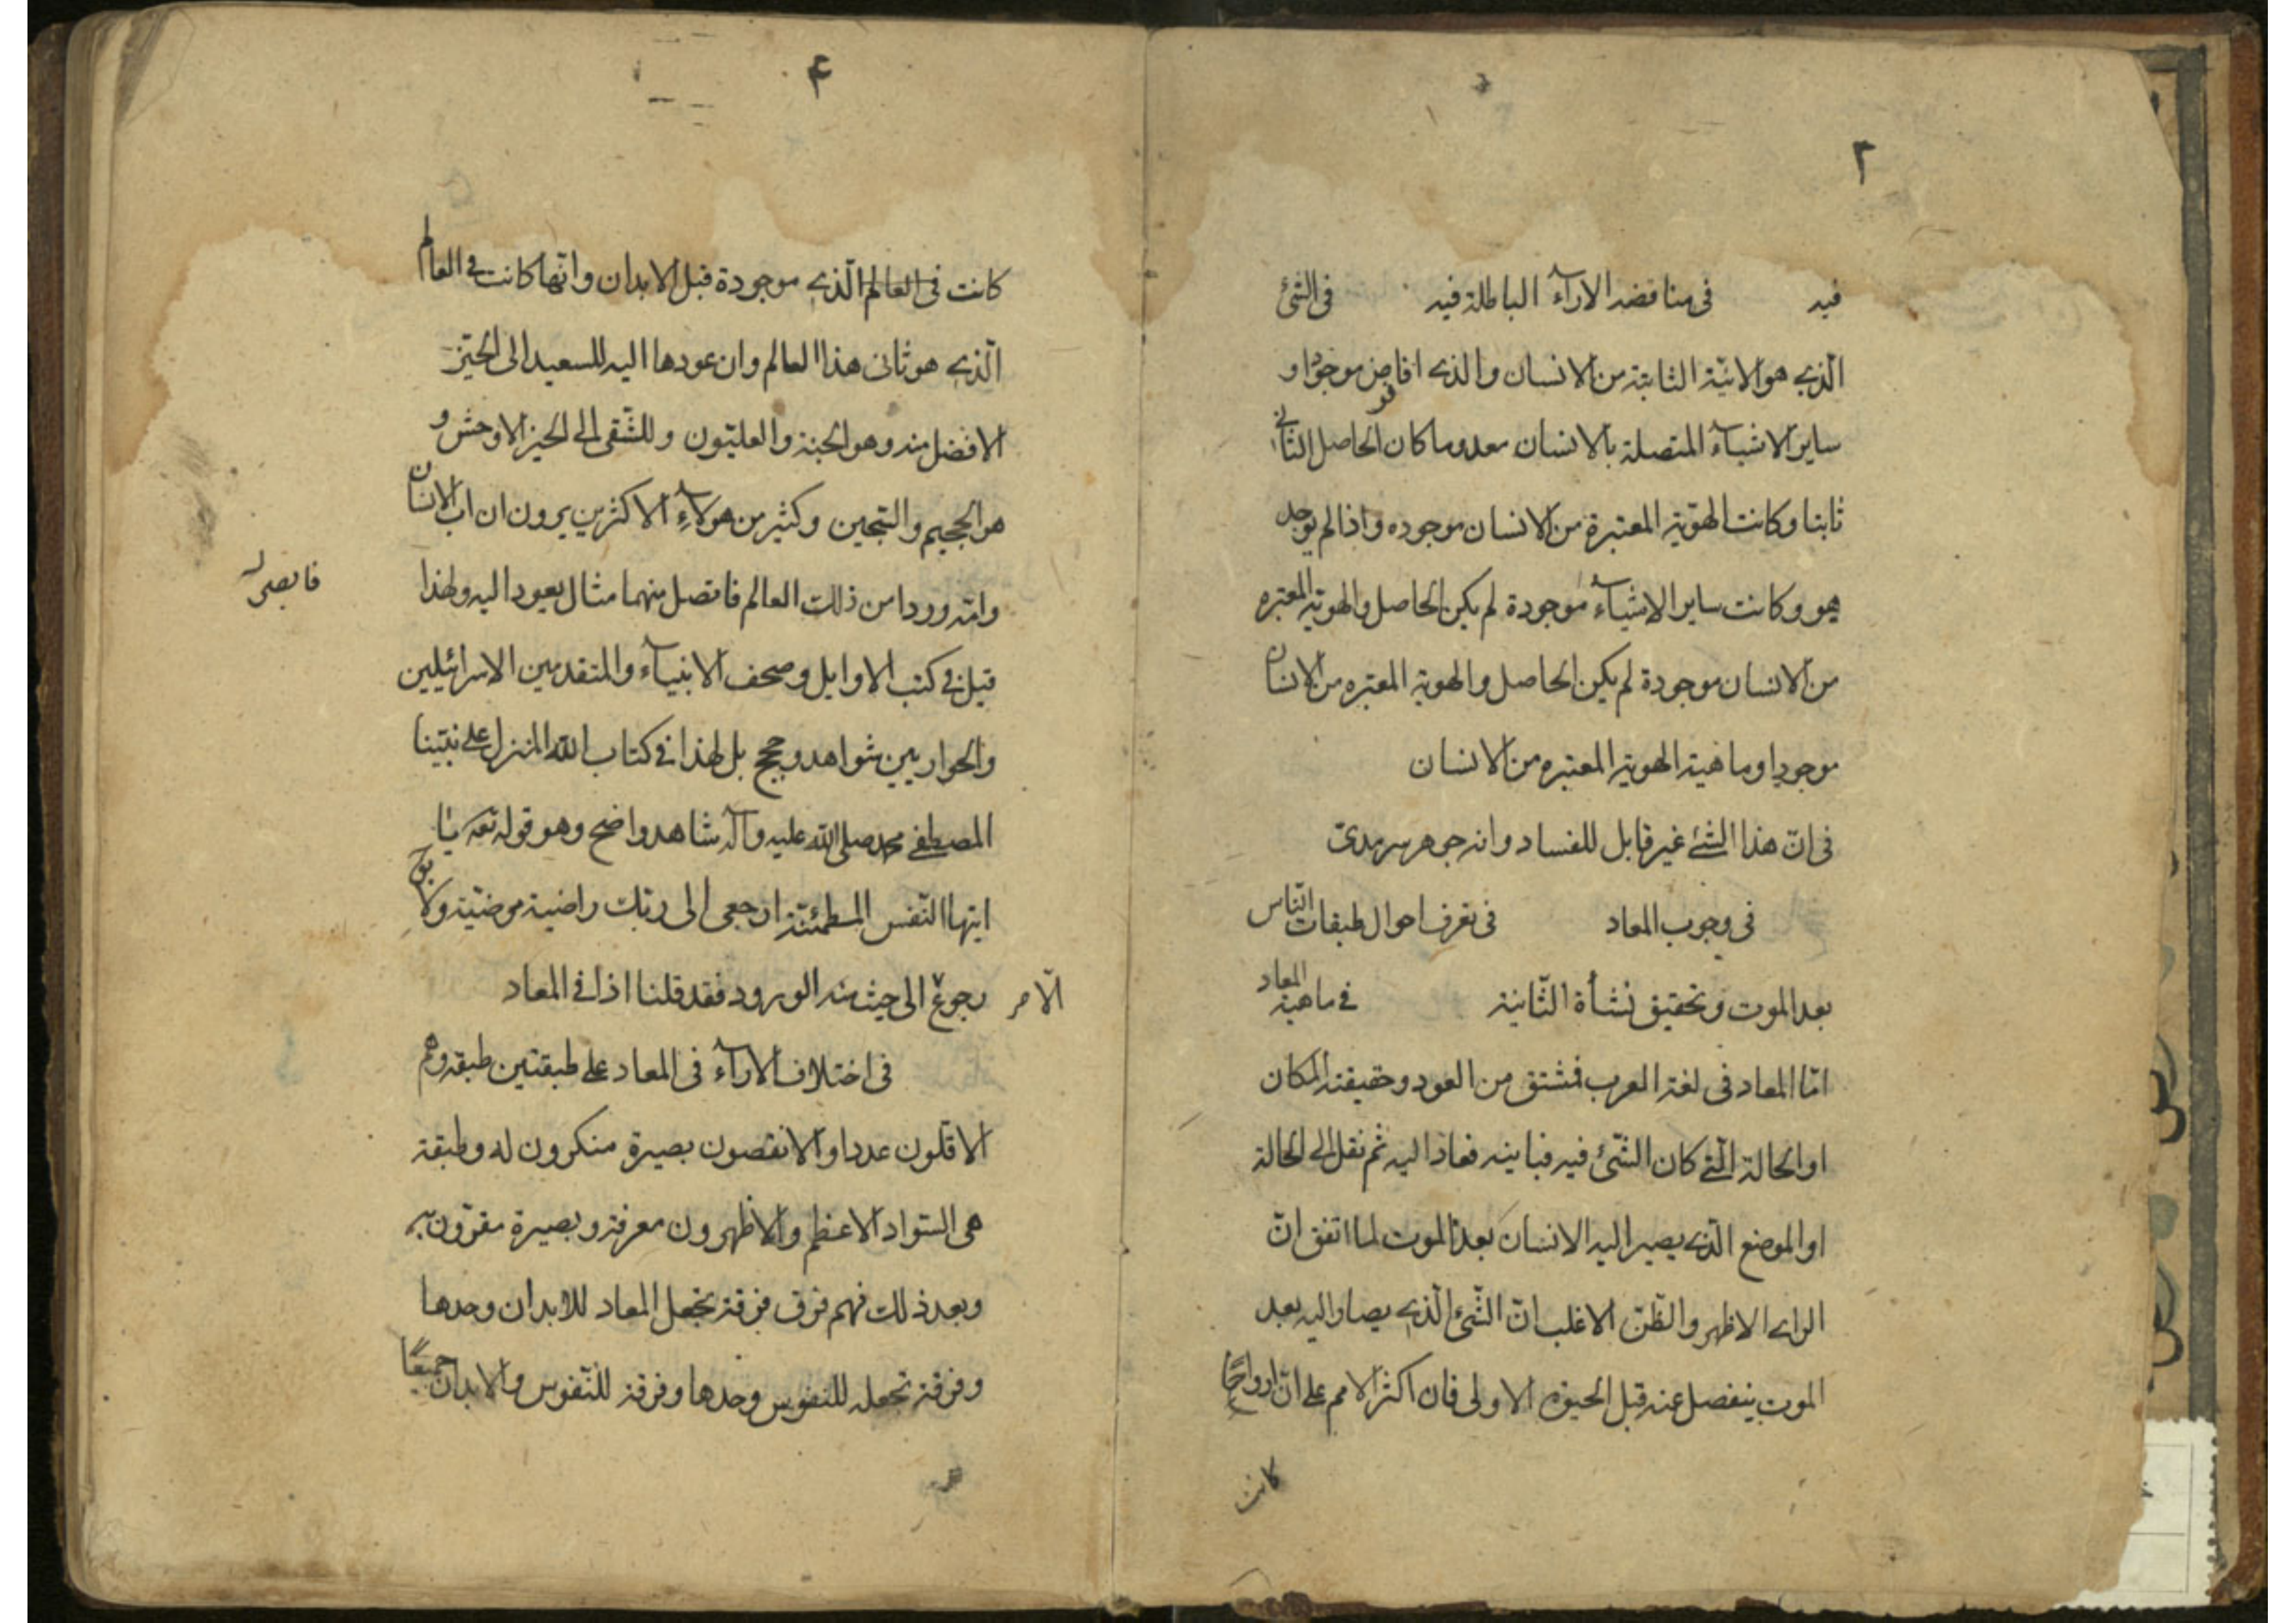 ٣
فيه في مناقضه الاراء الباطلة فيه في الشئ
الّذي هو الانيّة الثابتة من الانسان والذي اذا فرض موجودا و
ساير الاشياء المتصلة بالانسان معدوما كان الحاصل الثاني
ثابتا وكانت الهويّة المعتبرة من الانسان موجوده واذا لم يوجد
هو وكانت ساير الاشياء موجودة لم يكن الحاصل والهوية المعتبره
من الانسان موجودة لم يكن الحاصل والهوية المعتبره من الانسان
موجودا وماهية الهوية المعتبره من الانسان
في انّ هذا الشئ غير قابل للفساد وانه جوهر سرمديّ
في وجوب المعاد في تعرف احوال طبقات النّاس
بعد الموت وتحقيق نشأة الثّانية في ماهية المعاد
امّا المعاد في لغة العرب فمشتق من العود وحقيقته المكان
او الحالة الّتي كان الشّئ فيه فباينه فعاد اليه ثم نقل الى الحالة
او الموضع الّذي يصير اليه الانسان بعد الموت لما اتفق انّ
الراي الاظهر والظّنّ الاغلب انّ الشّئ الّذي يصار اليه بعد
الموت ينفصل عنه قبل الحيوة الاولى فان اكثر الامم على انّ ارواحًا
كانت
۴
كانت في العالم الّذي موجودة قبل الابدان وانّها كانت في العالم
الّذي هو ثاني هذا العالم وان عودها اليه للسعيد الى الحيّز
الافضل منه وهو الجنة والعليّون وللشّقي الى الحيز الاوحش و
هو الجحيم والسّجين وكثير من هولاءِ الاكثرين يرون ان اب الانسان
وامّه وردا من ذلك العالم فاتصل منهما مثال يعود اليه ولهذا
قيل في كتب الاوايل وصحف الانبياء والمتقدمين الاسرائيليين
والحواريين شواهد وحجج بل لهذا في كتاب الله المنزل على نبيّنا
المصطفى محمد صلى الله عليه وآله شاهد واضح وهو قوله تعه يا
ايتها النّفس المطمئنّة ارجعي الى ربّك راضية مرضيّة ولا يق
رجوع الّا من الى حيث منه الورود فقد قلنا اذا في المعاد
في اختلاف الاراء في المعاد على طبقتين طبقة وهم
الاقلّون عددا والانقصون بصيرة منكرون له وطبقة
هي السّواد الاعظم والاظهرون معرفة وبصيرة مقرّون به
وبعد ذلك فهم فرق فرقة تجعل المعاد للابدان وحدها
وفرقة تجعله للنفوس وحدها وفرقة للنّفوس والابدان جميعًا